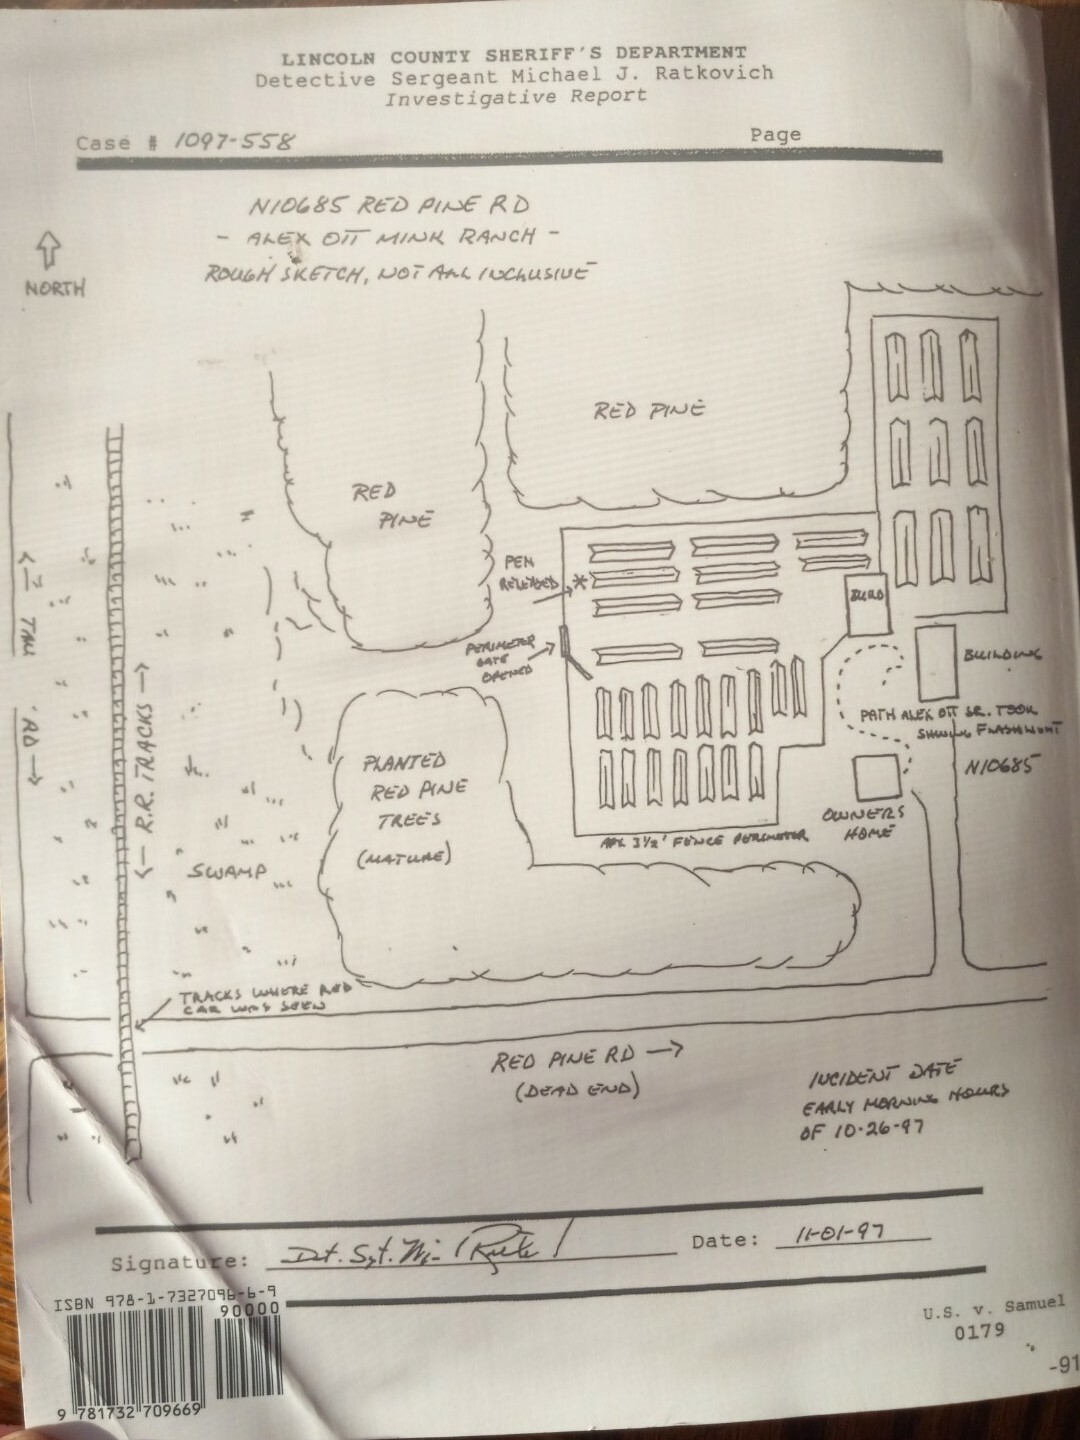 LINCOLN COUNTY SHERIFF'S DEPARTMENT
Detective Sergeant Michael J. Ratkovich
Investigative Report
Case # 1097-558
Page
N10685 RED PINE RD
- ALEX OTT MINK RANCH -
ROUGH SKETCH, NOT ALL INCLUSIVE
NORTH
RED PINE
RED
PINE
PEN
RELEASED
*
BUILD
PERIMETER
GATE
OPENED
BUILDING
PATH ALEX OTT SR. TOOK
SHINING FLASHLIGHT
N10685
OWNERS
HOME
APX 3½' FENCE PERIMETER
PLANTED
RED PINE
TREES
(MATURE)
<-- R.R. TRACKS -->
RD -->
SWAMP
TRACKS WHERE RED
CAR WAS SEEN
RED PINE RD -->
(DEAD END)
INCIDENT DATE
EARLY MORNING HOURS
OF 10-26-97
Signature: Det. Sgt.
Date: 11-01-97
ISBN 978-1-7327096-6-9
90000
9 781732 709669
U.S. v. Samuel
0179
-91